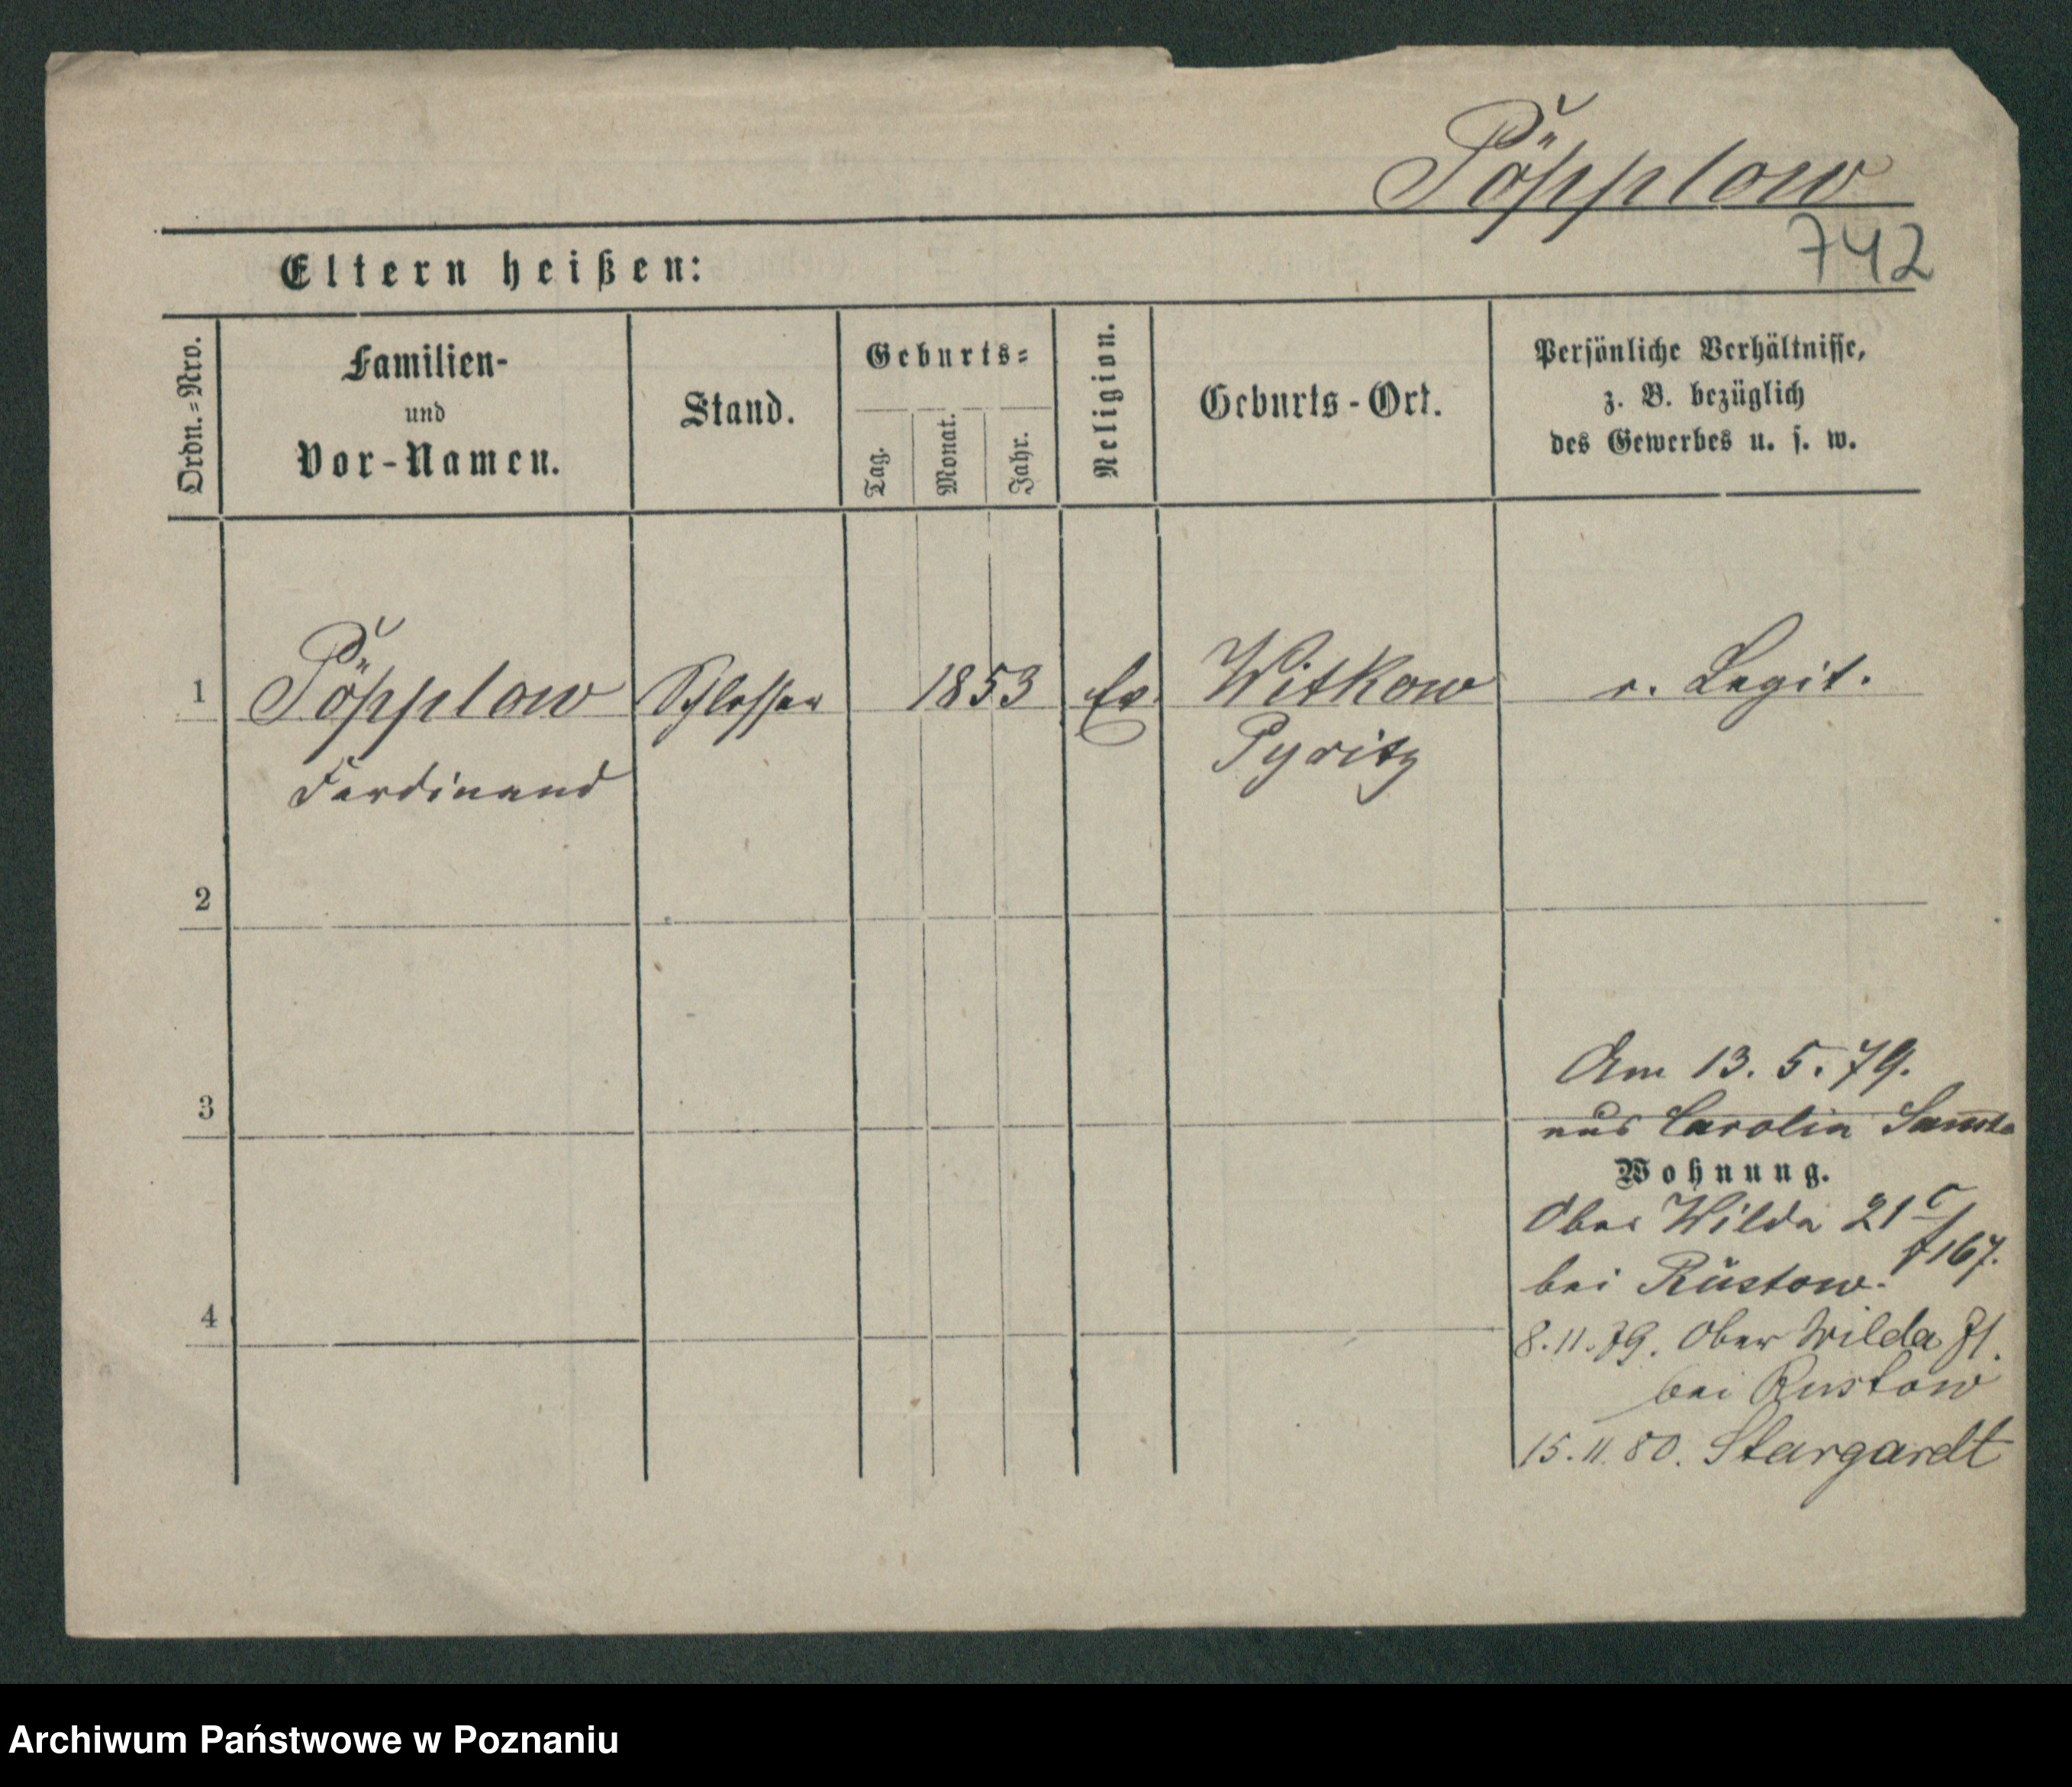 Pöpplow
742
Eltern heißen:
Ordn.=Nro.
Familien-
und
Vor-Namen.
Stand.
Geburts=
Tag.
Monat.
Jahr.
Religion.
Geburts-Ort.
Persönliche Verhältnisse,
z. B. bezüglich
des Gewerbes u. s. w.
1 Pöpplow Schlosser 1853 Ev. Witkow o. Legit.
Ferdinand Pyritz
2
3
Am 13. 5. 79.
aus Carolin
Wohnung.
Ober Wilda 21
167.
bei Rüstow.
4
8.11.79. Ober Wilda 71.
bei Rustow
15.11.80. Stargardt
Archiwum Państwowe w Poznaniu